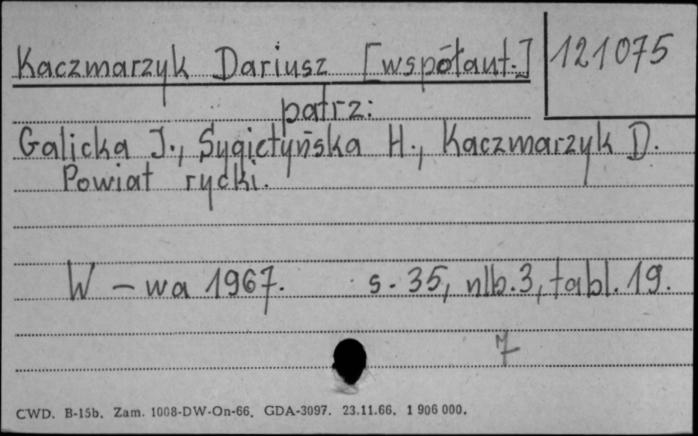 Kaczmarzyk Dariusz [współaut.] 121075
patrz:
Galicka J., Sygietyńska H., Kaczmarzyk D.
Powiat rycki.
W-wa 1967. s. 35, nlb. 3, tabl. 19.
7
CWD. B-15b. Zam. 1008-DW-On-66. GDA-3097. 23.11.66. 1 906 000.